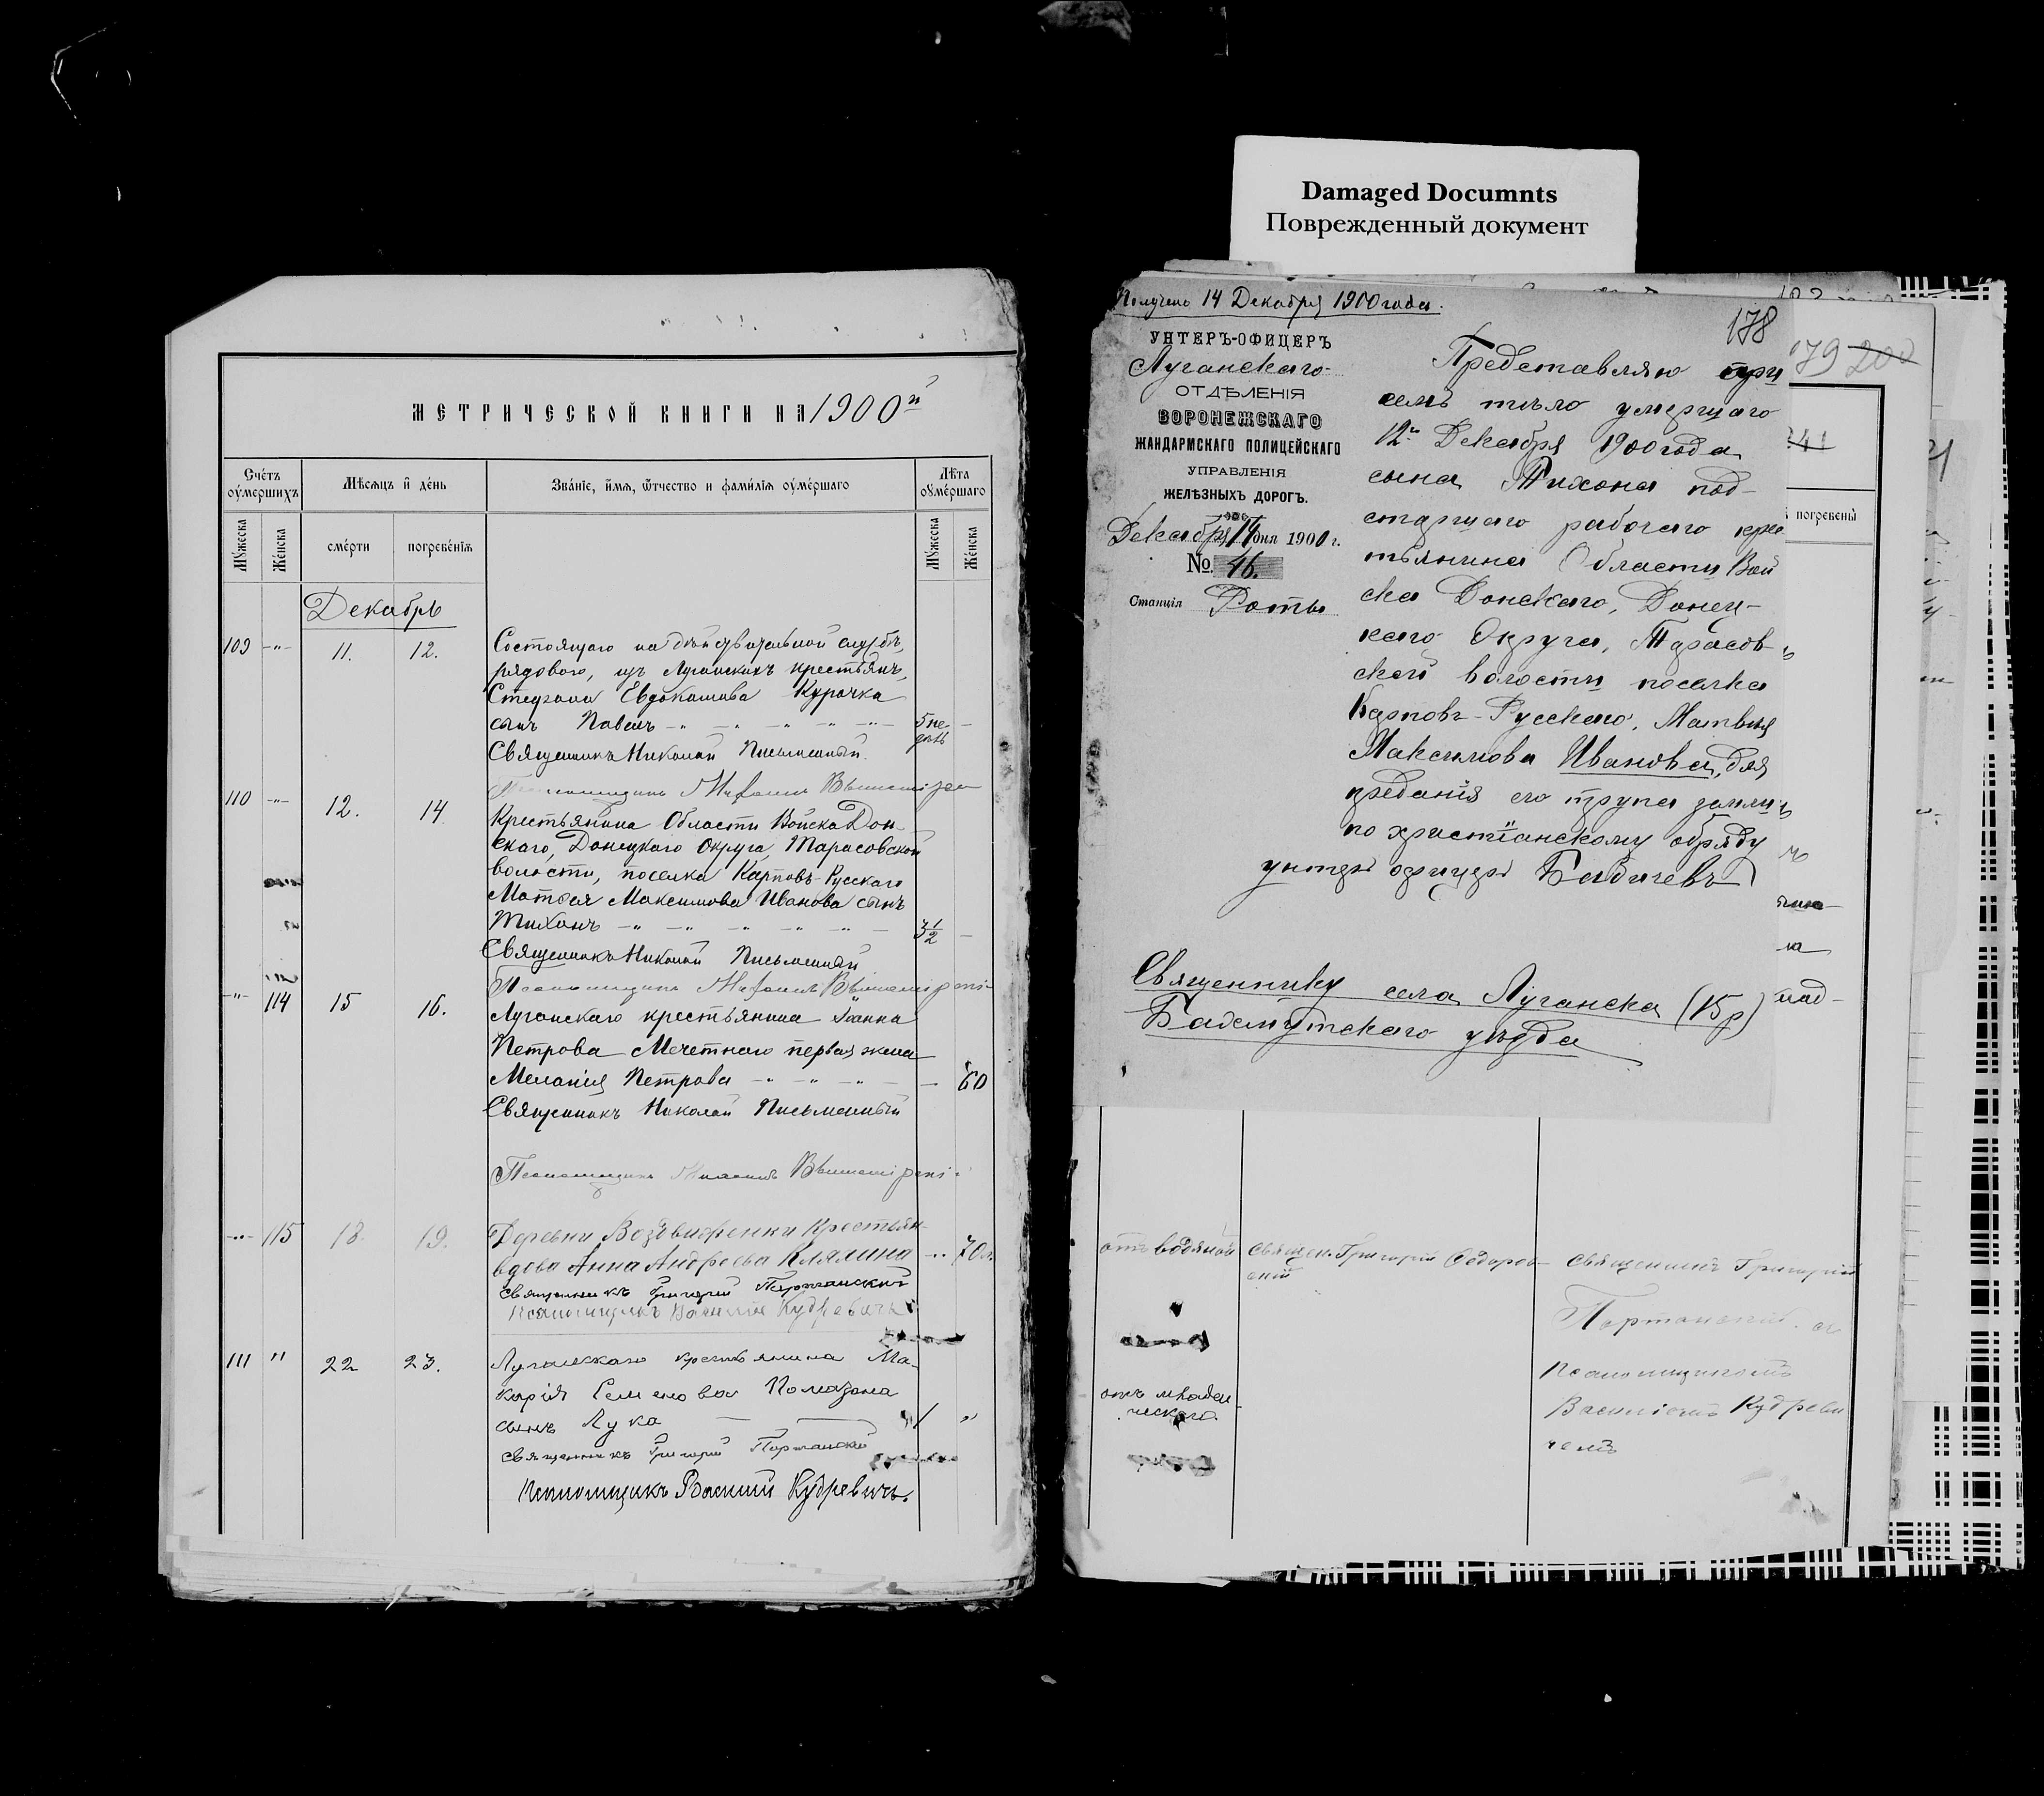 Damaged Documnts
Поврежденный документ
МЕТРИЧЕСКОЙ КНИГИ НА 1900й
Сче́тъ оу҆ме́ршихъ
Мѣ́сѧцъ и҆ де́нь
Зва́нїе, и҆́мѧ, ѻ҆́тчество и҆ фами́лїѧ оу҆ме́ршаго
Лѣ́та оу҆ме́ршаго
Мꙋ́жеска
Же́нска
сме́рти
погребе́нїѧ
Мꙋ́жеска
Же́нска
Декабрь
109 -"- 11. 12. Состоящаго на дѣйствительной службѣ,
рядового, изъ Луганскихъ крестьянъ,
Стефана Евдокимова Курочка
сынъ Павелъ 5 не-
дѣль
Священникъ Николай Письменный
Псаломщикъ
110 -"- 12. 14. Крестьянина Области Войска Дон-
скаго, Донецкаго Округа, Тарасовской
волости, поселка Карповъ-Русскаго
Матвея Максимова Иванова сынъ
Тихонъ 3 1/2
Священникъ Николай Письменный
Псаломщикъ
-"- 114 15 16. Луганскаго крестьянина Іоанна
Петрова Мечетнаго первая жена
Меланія Петрова 60
Священникъ Николай Письменный
Псаломщикъ
-"- 115 18. 19. Деревни Воздвиженки крестьян-
вдова Анна Андреева Клялина 70 л.
Священникъ Григорій Портанскій
Псаломщикъ Василій Кудревичъ
111 " 22 23. Луганскаго крестьянина Ма-
карія Семенова Помазана
сынъ Лука 1 "
Священникъ Григорій Портанскій
Псаломщикъ Василій Кудревичъ.
Получено 14 Декабря 1900 года.
178
179 200
241
УНТЕРЪ-ОФИЦЕРЪ
Луганскаго
ОТДѢЛЕНІЯ
ВОРОНЕЖСКАГО
ЖАНДАРМСКАГО ПОЛИЦЕЙСКАГО
УПРАВЛЕНІЯ
ЖЕЛѢЗНЫХЪ ДОРОГЪ.
Декабря 14 дня 1900 г.
№ 46.
Станція Роты
Представляю при
семъ тѣло умершаго
12го Декабря 1900 года
сына Тихона под-
старшаго рабочаго крес
тьянина Области Вой
ска Донскаго, Донец-
каго Округа, Тарасов-
ской волости поселка
Карповъ-Русскаго, Матвѣя
Максимова Иванова, для
преданія его трупа земли
по христіанскому обряду
унтеръ офицеръ Бабичевъ
Священнику села Луганска (15 р)
Бахмутскаго уѣзда
погребены̀
отъ водяной
Священ. Григорій Федоров-
скій
Священникъ Григорій
Портанскій. съ
псаломщикомъ
Василіемъ Кудреви
чемъ
отъ младен-
ческаго.